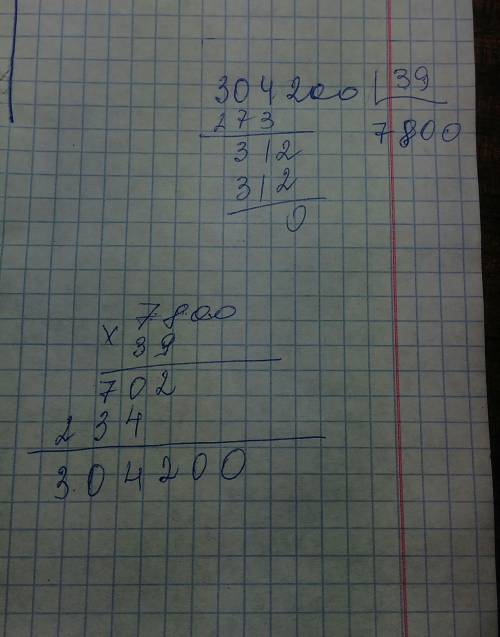 304200 | 39
273 7800
312
312
0
7800
× 39
702
234
304200